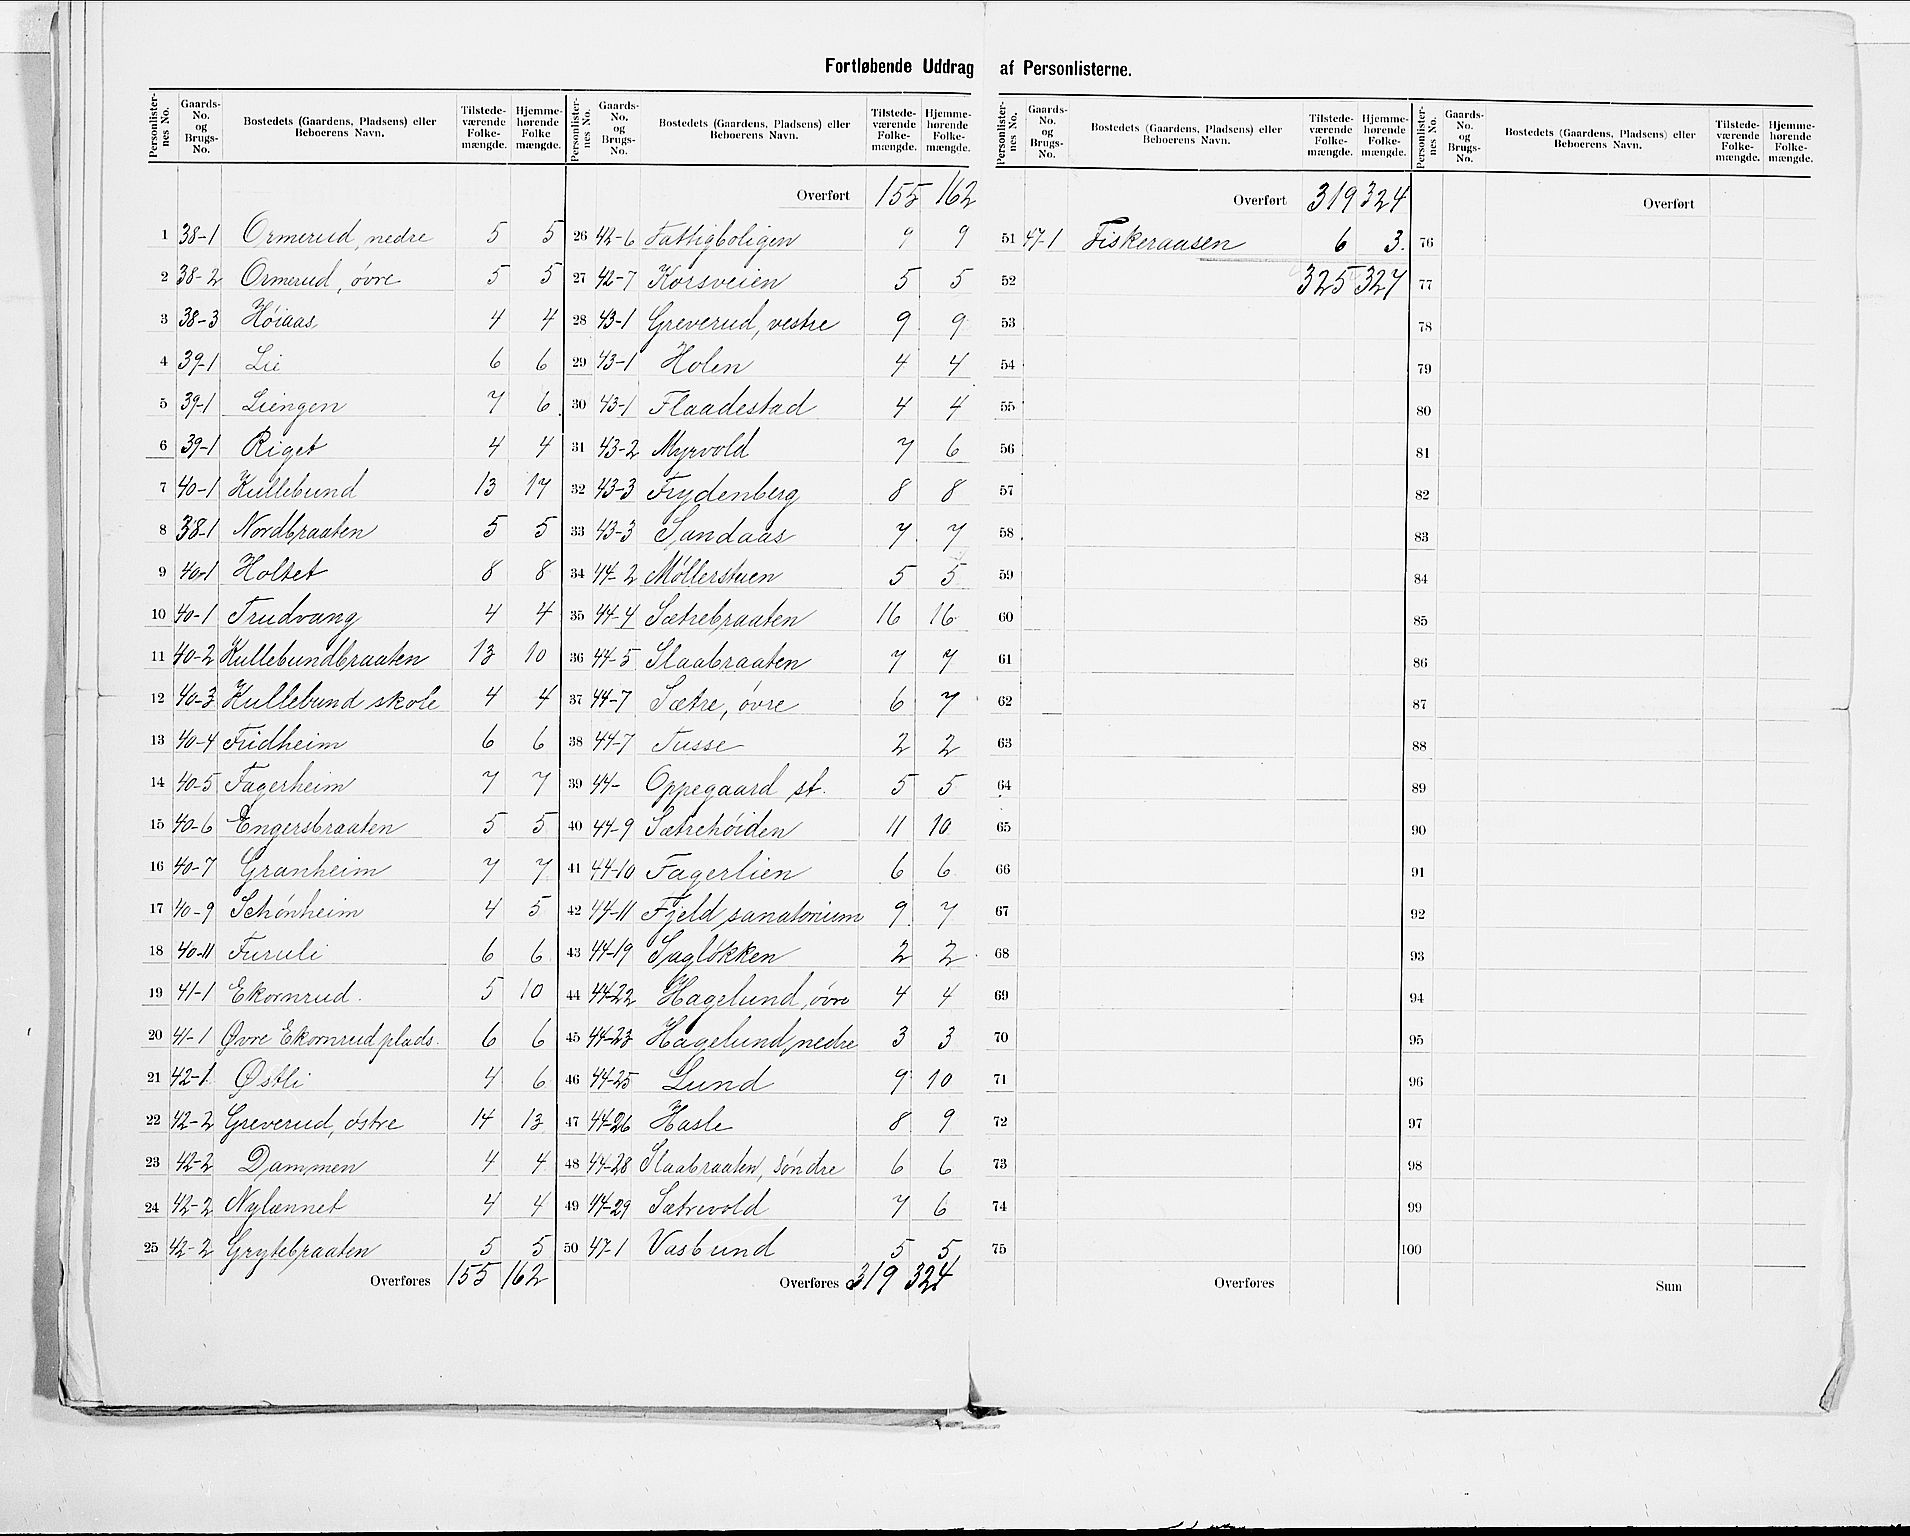 Fortløbende Uddrag af Personlisterne.
Personlister-nes No. Gaards-No. og Brugs-No. Bostedets (Gaardens, Pladsens) eller Beboerens Navn. Tilstede-værende Folke-mængde. Hjemme-hørende Folke mængde.
1 38-1 Ormerud, nedre 5 5
2 38-2 Ormerud, øvre 5 5
3 38-3 Høiaas 4 4
4 39-1 Lie 6 6
5 39-1 Liengen 7 6
6 39-1 Riget 4 4
7 40-1 Kullebund 13 17
8 38-1 Nordbraaten 5 5
9 40-1 Holtet 8 8
10 40-1 Trudvang 4 4
11 40-2 Kullebundbraaten 13 10
12 40-3 Kullebund skole 4 4
13 40-4 Fridheim 6 6
14 40-5 Fagerheim 7 7
15 40-6 Engersbraaten 5 5
16 40-7 Granheim 7 7
17 40-9 Schønheim 4 5
18 40-11 Furuli 6 6
19 41-1 Ekornrud. 5 10
20 41-1 Øvre Ekornrud plads. 6 6
21 42-1 Østli 4 6
22 42-2 Greverud, østre 14 13
23 42-2 Dammen 4 4
24 42-2 Nylænnet 4 4
25 42-2 Grytebraaten 5 5
Overføres 155 162
Personlister-nes No. Gaards-No. og Brugs-No. Bostedets (Gaardens, Pladsens) eller Beboerens Navn. Tilstede-værende Folke-mængde. Hjemme-hørende Folke-mængde.
Overført 155 162
26 42-6 Fattigboligen 9 9
27 42-7 Korsveien 5 5
28 43-1 Greverud, vestre 9 9
29 43-1 Holen 4 4
30 43-1 Flaadestad 4 4
31 43-2 Myrvold 7 6
32 43-3 Frydenberg 8 8
33 43-3 Sandaas 7 7
34 44-2 Møllerstuen 5 5
35 44-4 Sætrebraaten 16 16
36 44-5 Slaabraaten 7 7
37 44-7 Sætre, øvre 6 7
38 44-7 Tusse 2 2
39 44- Oppegaard st. 5 5
40 44-9 Sætrehøiden 11 10
41 44-10 Fagerlien 6 6
42 44-11 Fjeld sanatorium 9 7
43 44-19 Sagløkken 2 2
44 44-22 Hagelund, øvre 4 4
45 44-23 Hagelund, nedre 3 3
46 44-25 Lund 9 10
47 44-26 Hasle 8 9
48 44-28 Slaabraaten, søndre 6 6
49 44-29 Sætrevold 7 6
50 47-1 Vasbund 5 5
Overføres 319 324
Personlister-nes No. Gaards-No. og Brugs-No. Bostedets (Gaardens, Pladsens) eller Beboerens Navn. Tilstede-værende Folke-mængde. Hjemme-hørende Folke-mængde.
Overført 319 324
51 47-1 Fiskeraasen 6 3.
52 325 327
53
54
55
56
57
58
59
60
61
62
63
64
65
66
67
68
69
70
71
72
73
74
75
Overføres
Personlister-nes No. Gaards-No. og Brugs-No. Bostedets (Gaardens, Pladsens) eller Beboerens Navn. Tilstede-værende Folke-mængde. Hjemme-hørende Folke-mængde.
Overført
76
77
78
79
80
81
82
83
84
85
86
87
88
89
90
91
92
93
94
95
96
97
98
99
100
Sum